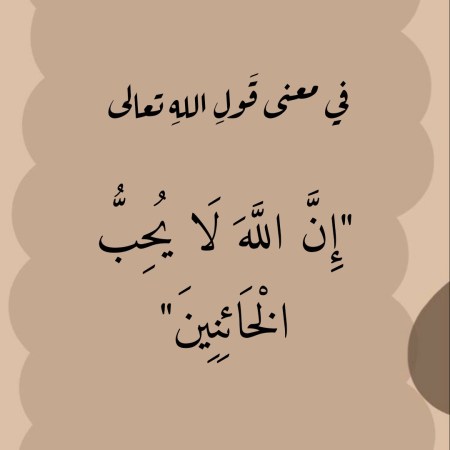 في معنى قَولِ اللهِ تعالى
"إِنَّ اللَّهَ لَا يُحِبُّ
الْخَائِنِينَ"